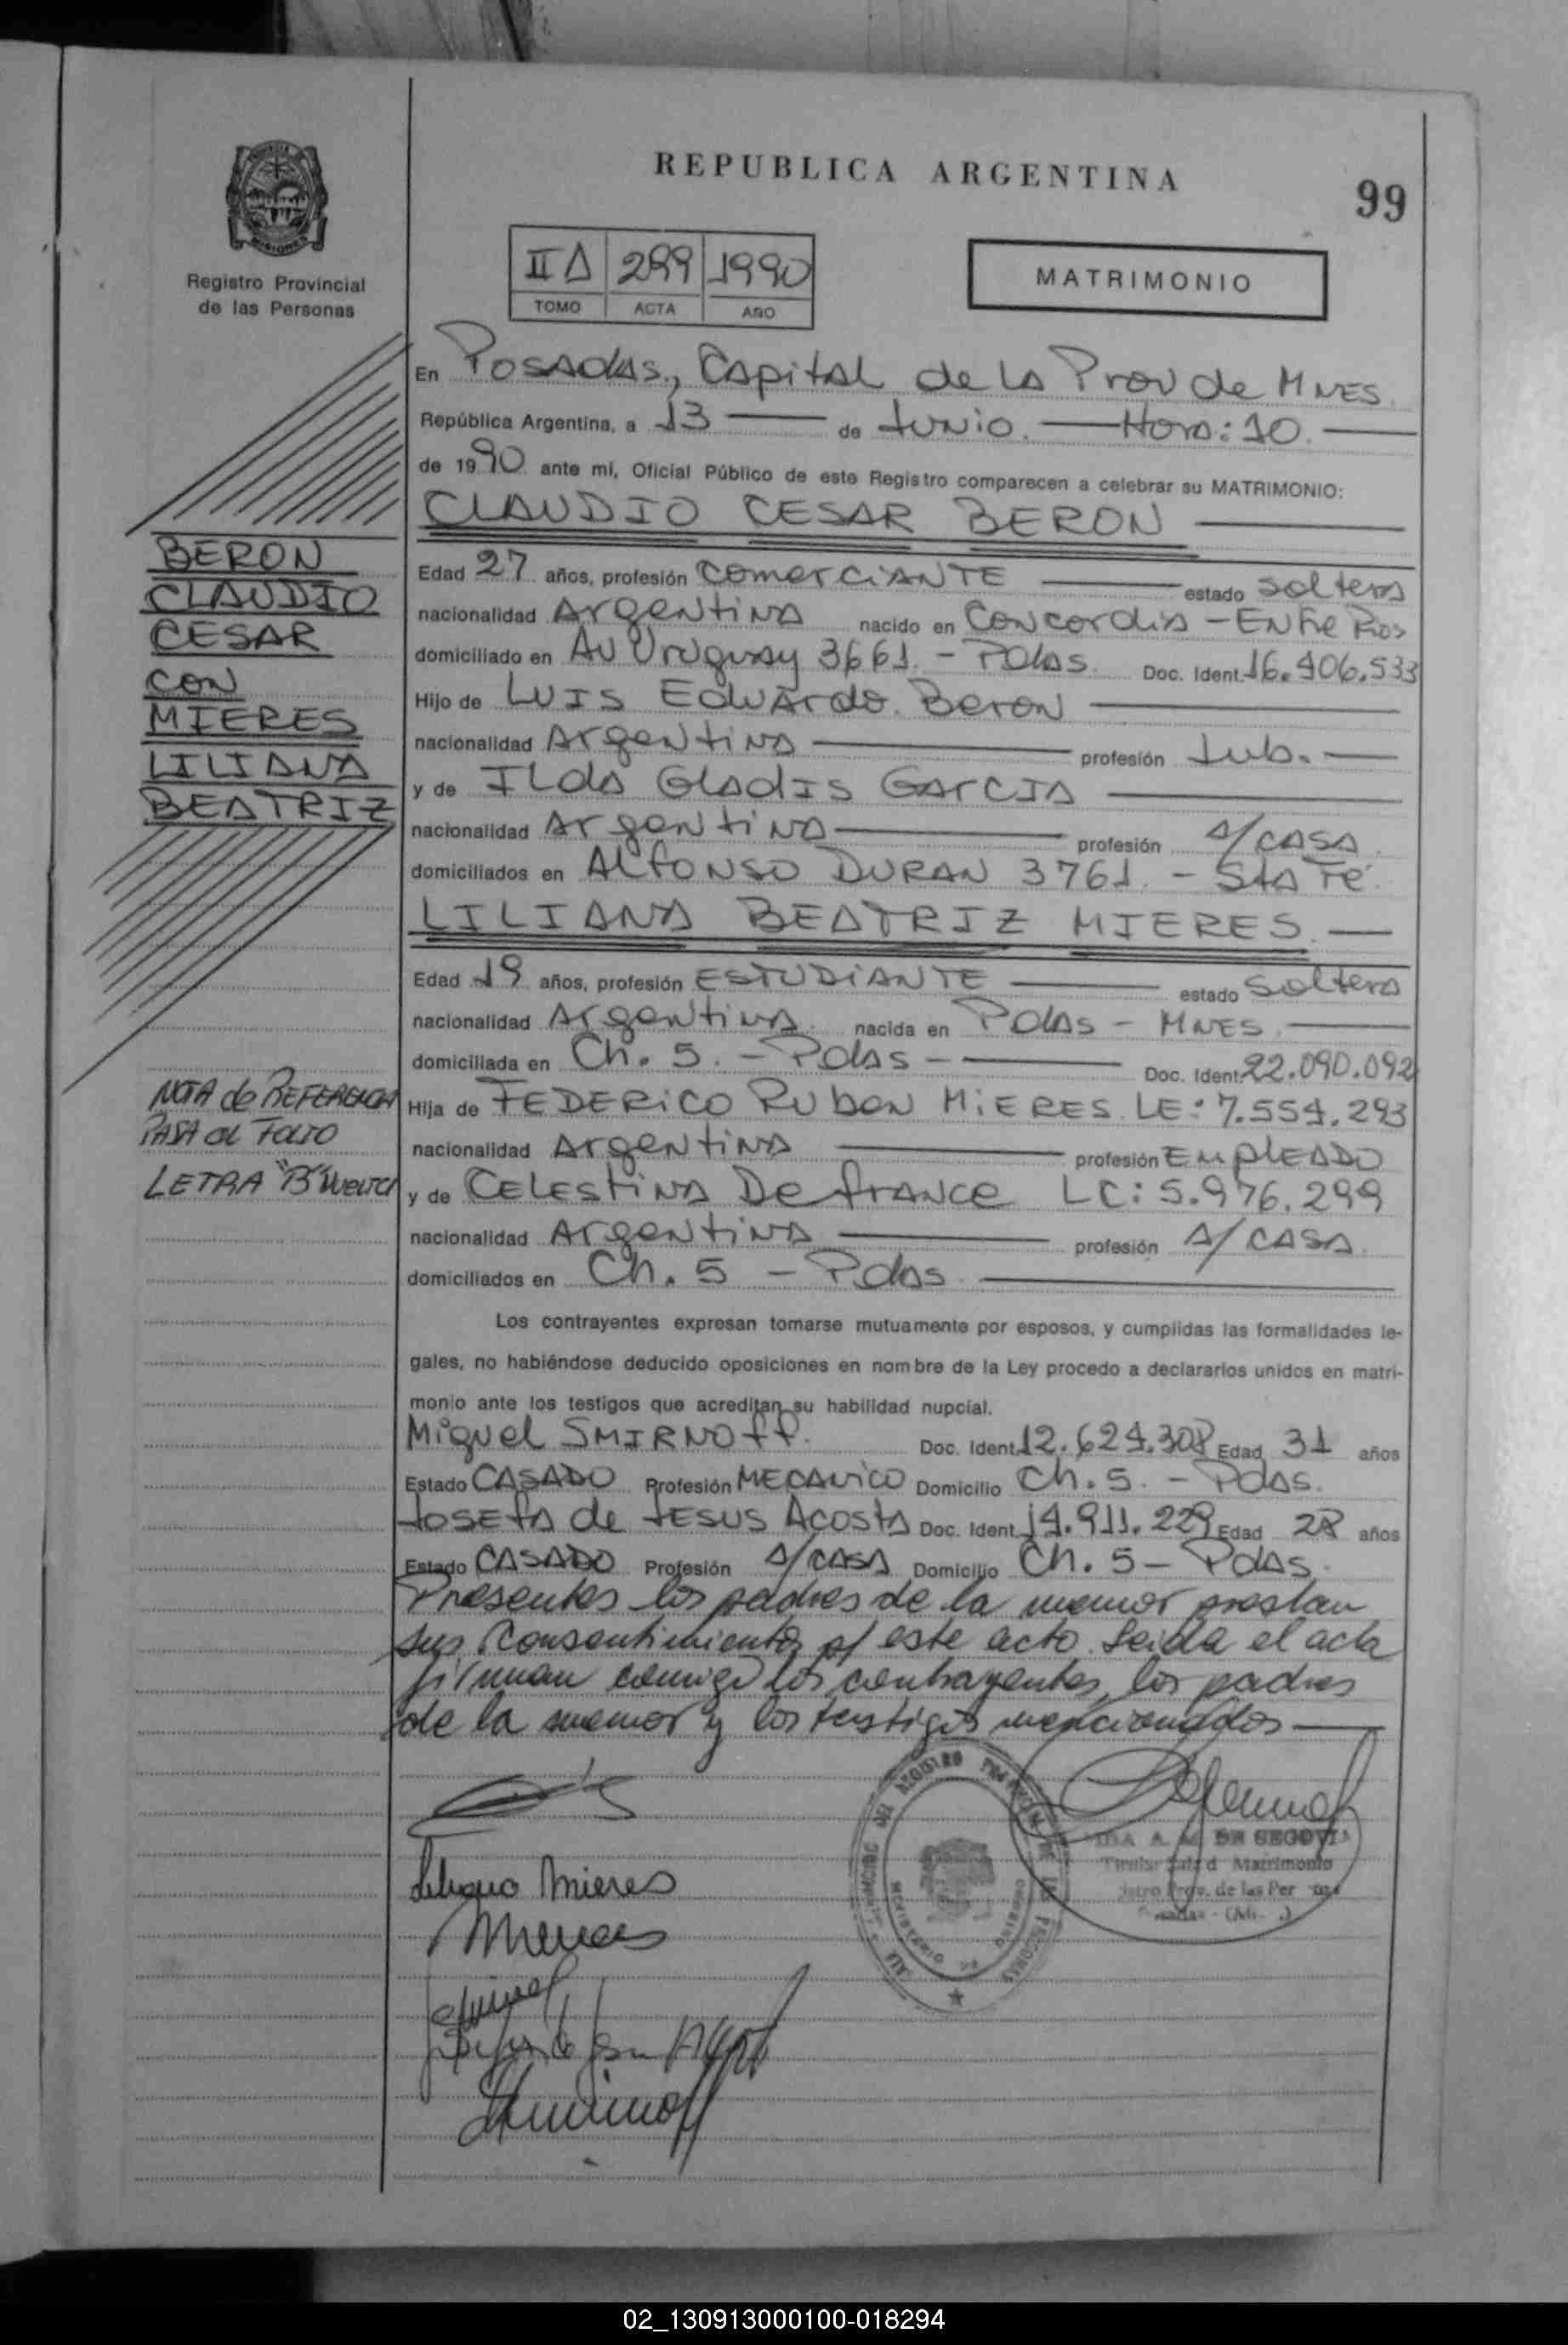 REPUBLICA ARGENTINA
99
MISIONES
Registro Provincial
de las Personas
II A 299 1990
TOMO ACTA AÑO
MATRIMONIO
En Posadas, Capital de la Prov de Mnes.
República Argentina, a 13 de Junio. Hora: 10.
de 1990 ante mi, Oficial Público de este Registro comparecen a celebrar su MATRIMONIO:
CLAUDIO CESAR BERON
Edad 27 años, profesión Comerciante estado soltero
nacionalidad Argentina nacido en Concordia - Entre Rios
domiciliado en Av Uruguay 3661. - Pdas. Doc. Ident. 16.406.533
Hijo de Luis Eduardo Beron
nacionalidad Argentina profesión Jub.
y de Ilda Gladis Garcia
nacionalidad Argentina profesión A/CASA
domiciliados en Alfonso Duran 3761. - Sta Fé.
LILIANA BEATRIZ MIERES
Edad 19 años, profesión ESTUDIANTE estado soltera
nacionalidad Argentina nacida en Pdas - Mnes.
domiciliada en Ch. 5. - Pdas - Doc. Ident. 22.090.092
Hija de FEDERICO Ruben MIERES LE: 7.554.293
nacionalidad Argentina profesión EMPLEADO
y de CELESTINA De france LC: 5.976.299
nacionalidad Argentina profesión A/CASA
domiciliados en Ch. 5 - Pdas.
Los contrayentes expresan tomarse mutuamente por esposos, y cumplidas las formalidades le-
gales, no habiéndose deducido oposiciones en nombre de la Ley procedo a declararlos unidos en matri-
monio ante los testigos que acreditan su habilidad nupcial.
Miguel SMIRNOff. Doc. Ident. 12.624.308 Edad 31 años
Estado CASADO Profesión MECANICO Domicilio Ch. 5. - Pdas.
Josefa de JESUS Acosta Doc. Ident. 14.911.229 Edad 28 años
Estado CASADO Profesión A/CASA Domicilio Ch. 5 - Pdas.
Presentes los padres de la menor prestan
sus consentimientos p/ este acto. Leida el acta
firman conmigo los contrayentes, los padres
de la menor y los testigos mencionados
BERON
CLAUDIO
CESAR
CON
MIERES
LILIANA
BEATRIZ
NOTA de REFERENCIA
PASA al FOLIO
LETRA "B" vuelta
Liliana Mieres
Mieres
DE SEGOVIA
Titular Sala d Matrimonio
Prov. de las Per
02_130913000100-018294